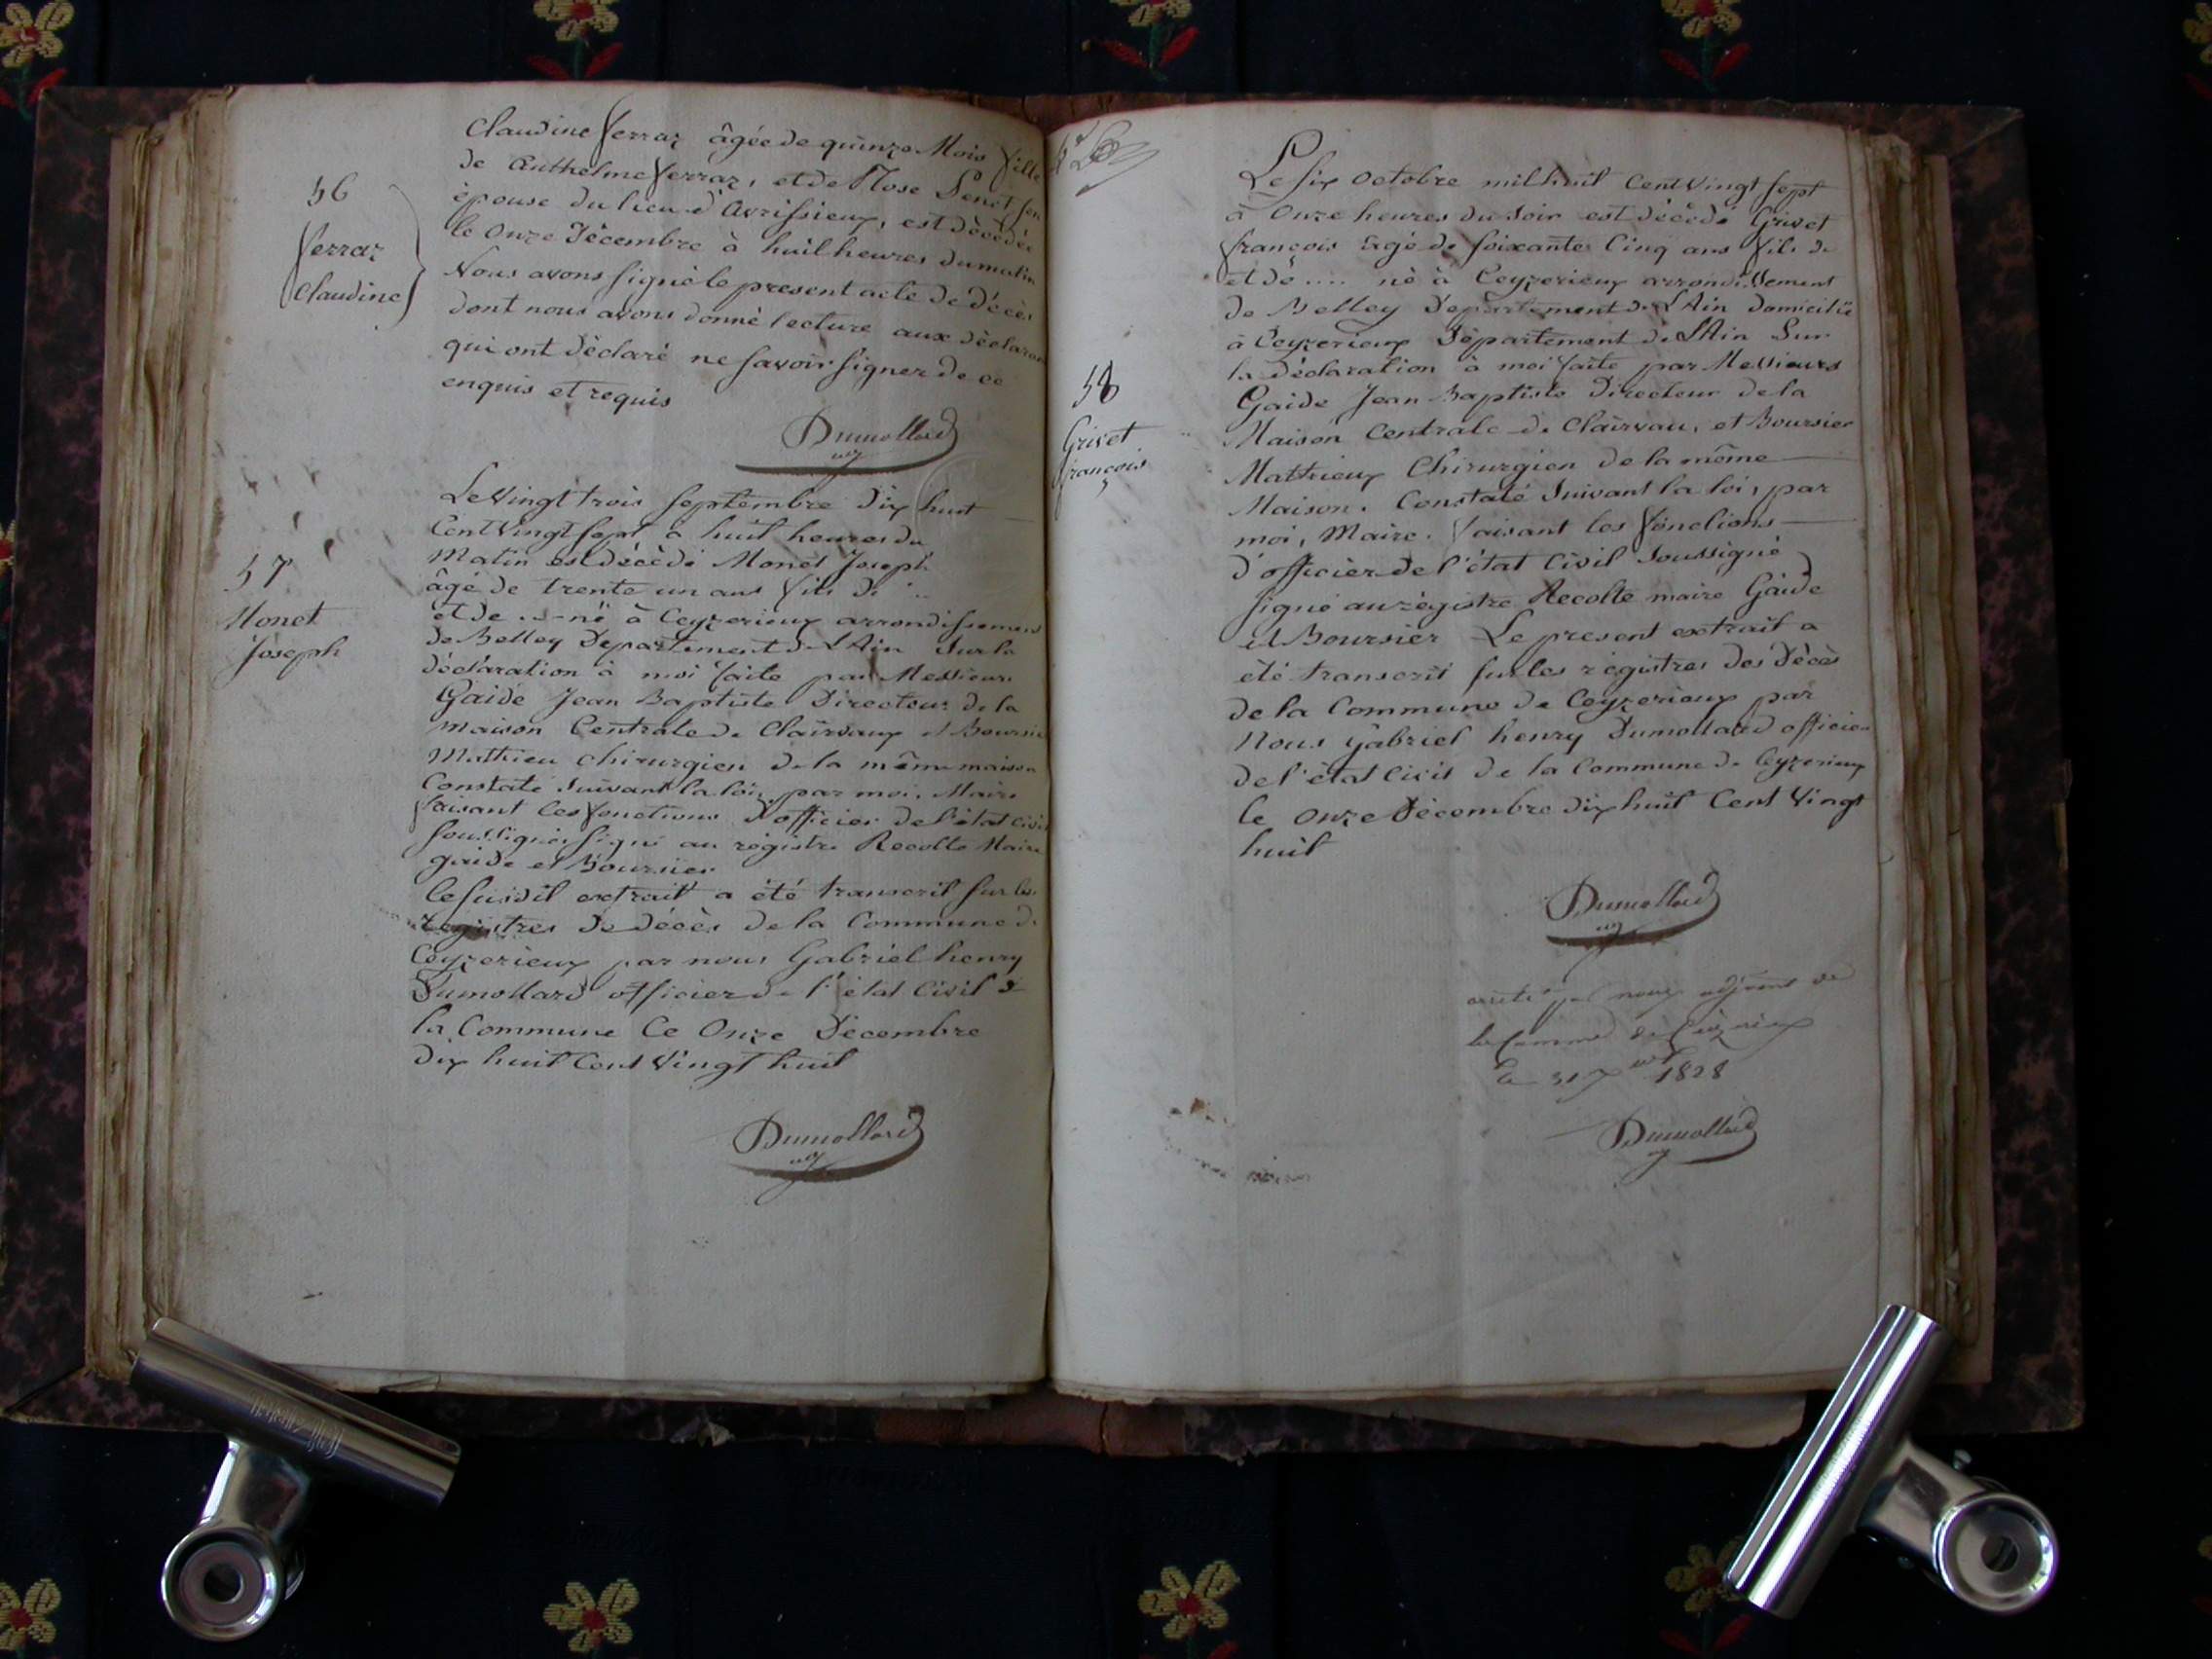 Claudine ferraz âgée de quinze Mois fille
de Anthelme ferraz, et de Rose Penet son
épouse du lieu d'Avrissieux, est décédée
le Onze Décembre à huit heures du matin
Nous avons signé le present acte de Décès
dont nous avons donné lecture aux déclarans
qui ont déclaré ne savoir signer de ce
enquis et requis
Dumollard
56
ferraz
Claudine
Le Vingt trois septembre dix huit
Cent Vingt sept à huit heures du
Matin est décédé Monet Joseph
âgé de trente un ans fils de ...
et de ... né à Ceyzerieux arrondissement
de Belley Departement de L'Ain Sur la
déclaration à moi faite par Messieurs
Gaide Jean Baptiste Directeur de la
maison Centrale de Clairvaux et Boursier
Mathieu chirurgien de la même maison
Constaté suivant la loi, par moi, Maire
faisant les fonctions d'officier de l'état civil
soussigné signé au régistre Recolte Maire
gaide et Boursier
le susdit extrait a été transcrit sur les
registres de décès de la Commune de
Ceyzerieux par nous Gabriel henry
Dumollard officier de l'état Civil de
la Commune Ce Onze Décembre
dix huit Cent Vingt huit
Dumollard
57
Monet
Joseph
Le six octobre mil huit Cent Vingt sept
à Onze heures du soir est décédé Grivet
françois âgé de soixante Cinq ans fils de
et de .... né à Ceyzerieux arrondissement
de Belley Departement de L'Ain domicilié
à Ceyzerieux Département de L'Ain Sur
la déclaration à moi faite par Messieurs
Gaide Jean Baptiste Directeur de la
Maison Centrale de Clairvau, et Boursier
Mathieux Chirurgien de la même
Maison. Constaté Suivant la loi, par
moi, Maire. faisant les fonctions
d'officier de l'état Civil Soussigné
signé au régistre Recolte maire Gaide
et Boursier Le present extrait a
été transcrit sur les régistres des Décès
de la Commune de Ceyzerieux par
Nous Gabriel henry Dumollard officier
de l'état Civil de la Commune de Ceyzerieux
le onze Décembre dix huit Cent Vingt
huit
Dumollard
58
Grivet
françois
arrêté par nous adjoint de
la Commune de Ceyzerieux
Le 31 1828
Dumollard